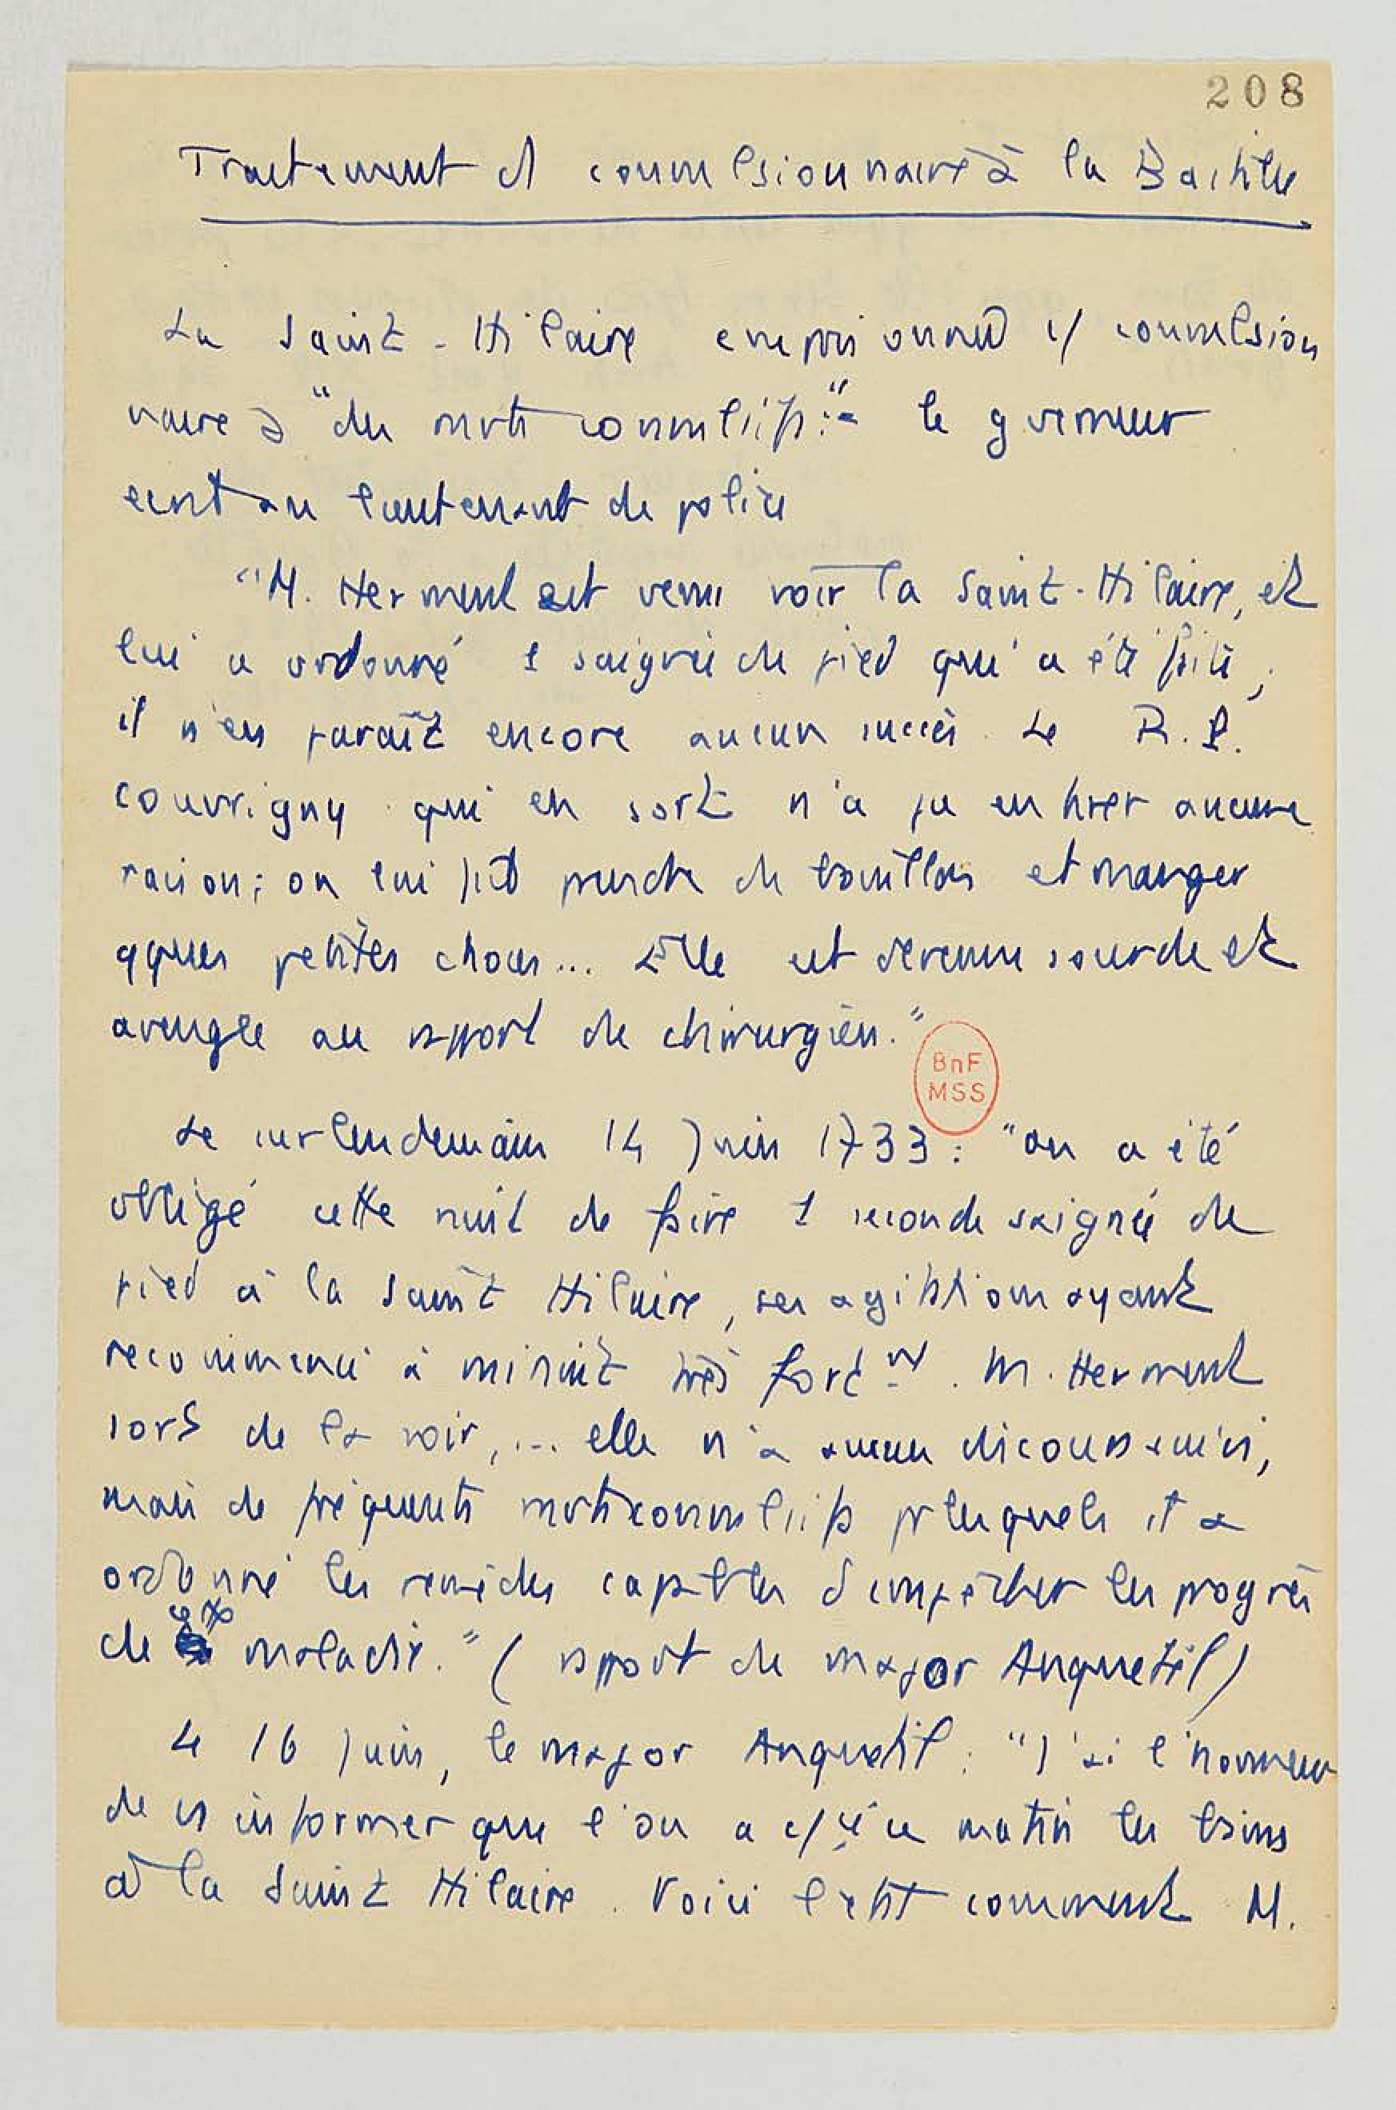 208
Traitement d convulsionnaires à la Bastille
La Saint-Hilaire emprisonnée c/ convulsion
naire a "des mvts convulsifs:" le gouverneur
ecrit au lieutenant de police
"M. Herment est venu voir la Saint-Hilaire, et
lui a ordonné 1 saignée du pied qui a été faite,
il n'en paraît encore aucun succès. Le R.P.
Couvrigny qui en sort n'a pu en tirer aucune
raison; on lui fait prendre du bouillon et manger
qques petites choses... Elle est devenue sourde et
aveugle au rapport du chirurgien."
BnF
MSS
Le surlendemain 14 Juin 1733: "on a été
obligé cette nuit de faire 1 seconde saignée du
pied à la Saint Hilaire, ses agitations ayant
recommencé à minuit très fort. M. Herment
sort de la voir,... elle n'a aucun discours suivi,
mais de fréquents mvts convulsifs pr lesquels il a
ordonné les remèdes capables d'empêcher les progrès
de maladie." (rapport du major Anquetil)
Le 16 Juin, le major Anquetil: "J'ai l'honneur
de vs informer que l'on a ce matin les bains
à la Saint Hilaire. Voici l'état comment M.